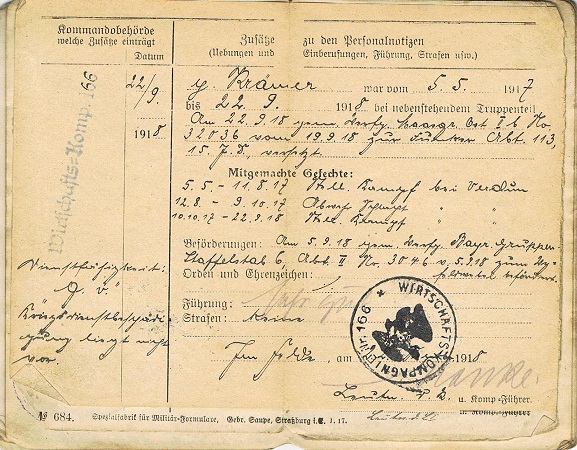 Kommandobehörde
welche Zusätze einträgt
Datum
Zusätze zu den Personalnotizen
(Uebungen und Einberufungen, Führung, Strafen usw.)
Wirtschafts-Komp. 166
22/9.
1918
g. Krämer war vom 5. 5. 1917
bis 22. 9. 1918 bei nebenstehendem Truppenteil
Am 22.9.18 gem. Verfg. Ost I b No
32036 vom 19.9.18 zur Funker Abt. 113,
versetzt.
Mitgemachte Gefechte:
5.5.-11.8.17 Stell. Kampf bei Verdun
12.8.-9.10.17 Abwehr " "
10.10.17-22.9.18 Stell. Kampf " "
Beförderungen: Am 5.9.18 gem. Verfg. Bayr. Gruppen-
Staffelstab 6 Abt. II No. 3046 v. 5.9.18 zum
feldwebel befördert.
Orden und Ehrenzeichen:
Dienstfähigkeit:
Führung: Sehr gut
Strafen: Keine
Kriegsdienstbeschädi-
gung liegt nicht
vor.
Im Felde, am 1918
WIRTSCHAFTSKOMPAGNIE Nr. 166
Leutn. u. Komp.-Führer.
u. Komp.-Führer
№ 684. Spezialfabrik für Militär-Formulare, Gebr. Saupe, Straßburg i. E. 1. 17.